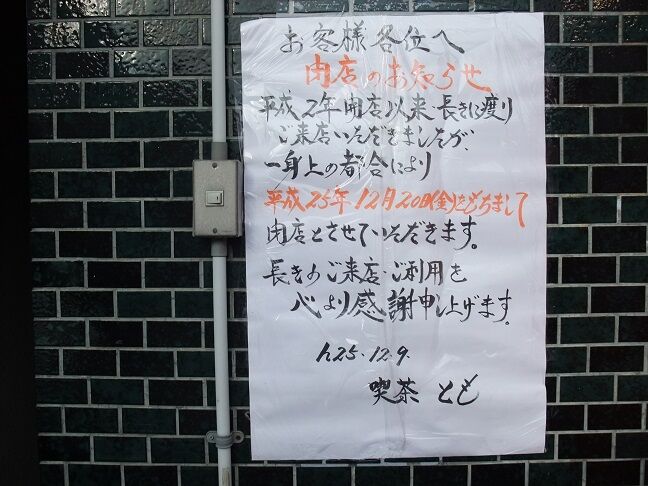 お客様各位へ
閉店のお知らせ
平成2年開店以来長きに渡り
ご来店いただきましたが、
一身上の都合により
平成25年12月20日(金)をもちまして
閉店とさせていただきます。
長きのご来店・ご利用を
心より感謝申し上げます。
h25.12.9.
喫茶 とも